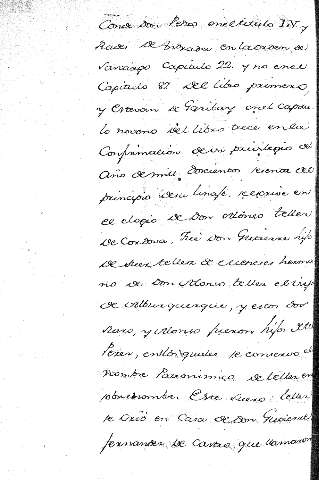 Conde Don Pedro en el titulo IIV. y
Rades de Andrada en la orden de
Santiago Capitulo 22. y no en el
Capitulo 87 del libro primero
y Estevan de Garibay en el capitu
lo noveno del libro trece en la
Confirmacion de un privilegio del
Año de mil, Doscientos
principio de su linaje, se escrive en
el elogio de Don Alonso tellez
de Cordova. Fué Don Gutierre hijo
de Suer tellez de Meneses herma
no de Don Alonso tellez el
de Alburquerque, y estos Don
Suero, y Alonso fueron hijos de
Perez, en los quales se conservo el
nombre Patronimico de tellez en
sobrenombre. Este Suero tellez
se crió en Casa de Don Gutierre
fernandez de Castro, que llamaron